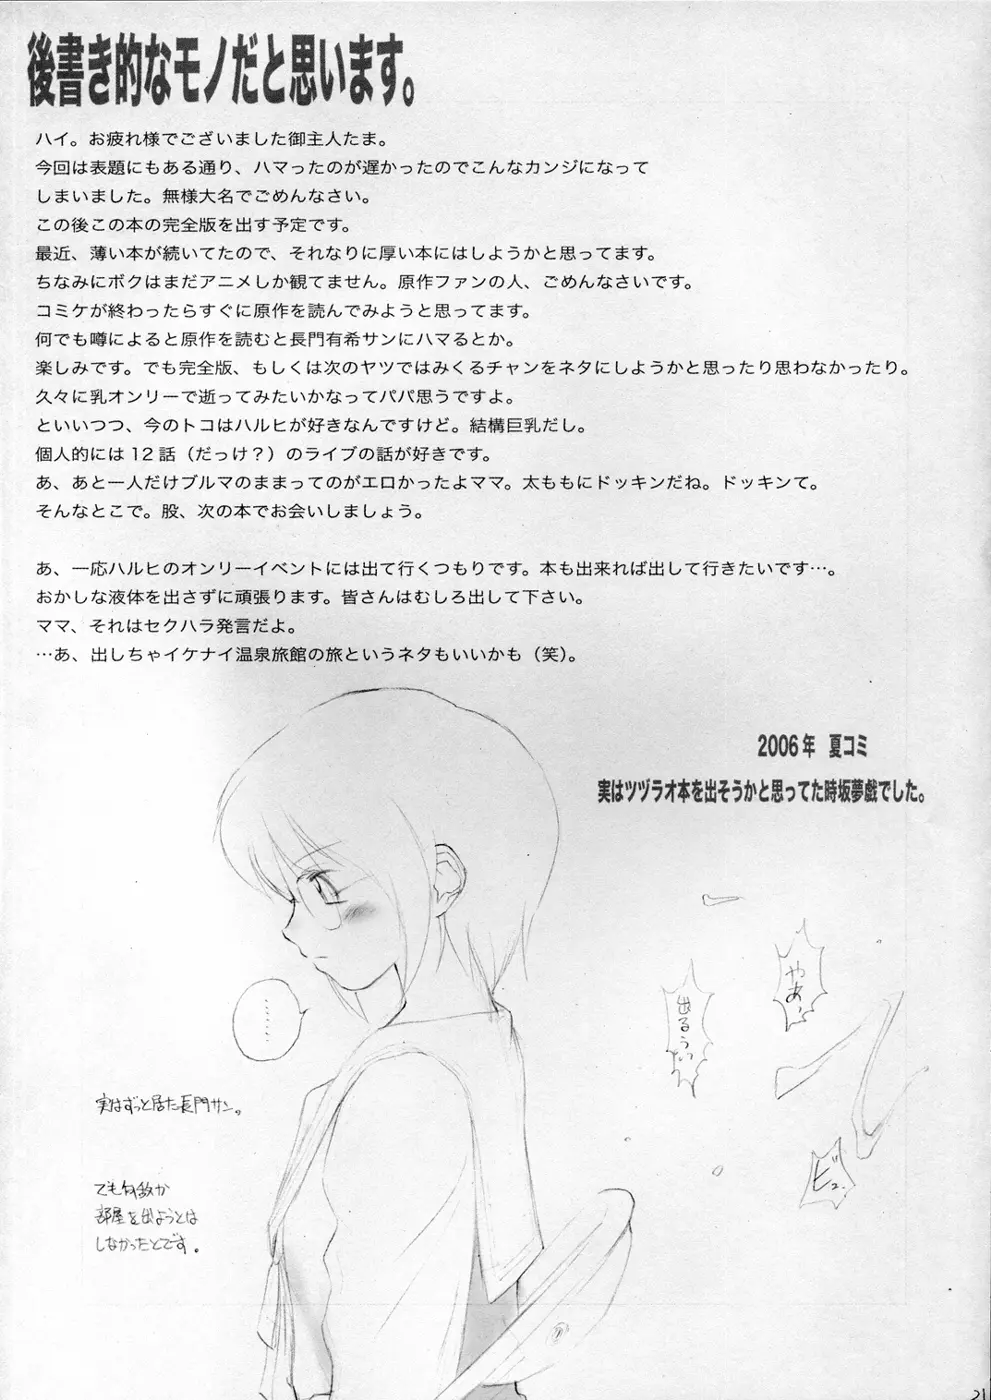 後書き的なモノだと思います。
ハイ。お疲れ様でございました御主人たま。
今回は表題にもある通り、ハマったのが遅かったのでこんなカンジになって
しまいました。無様大名でごめんなさい。
この後この本の完全版を出す予定です。
最近、薄い本が続いてたので、それなりに厚い本にはしようかと思ってます。
ちなみにボクはまだアニメしか観てません。原作ファンの人、ごめんなさいです。
コミケが終わったらすぐに原作を読んでみようと思ってます。
何でも噂によると原作を読むと長門有希サンにハマるとか。
楽しみです。でも完全版、もしくは次のヤツではみくるチャンをネタにしようかと思ったり思わなかったり。
久々に乳オンリーで逝ってみたいかなってパパ思うですよ。
といいつつ、今のトコはハルヒが好きなんですけど。結構巨乳だし。
個人的には12話（だっけ？）のライブの話が好きです。
あ、あと一人だけブルマのままってのがエロかったよママ。太ももにドッキンだね。ドッキンて。
そんなとこで。股、次の本でお会いしましょう。
あ、一応ハルヒのオンリーイベントには出て行くつもりです。本も出来れば出して行きたいです…。
おかしな液体を出さずに頑張ります。皆さんはむしろ出して下さい。
ママ、それはセクハラ発言だよ。
…あ、出しちゃイケナイ温泉旅館の旅というネタもいいかも（笑）。
2006年 夏コミ
実はツヅラオ本を出そうかと思ってた時坂夢戯でした。
やあ、
出るぅっ
……
実はずっと居た長門サン。
ビュ、
でも何故か
部屋を出ようとは
しなかったとです。